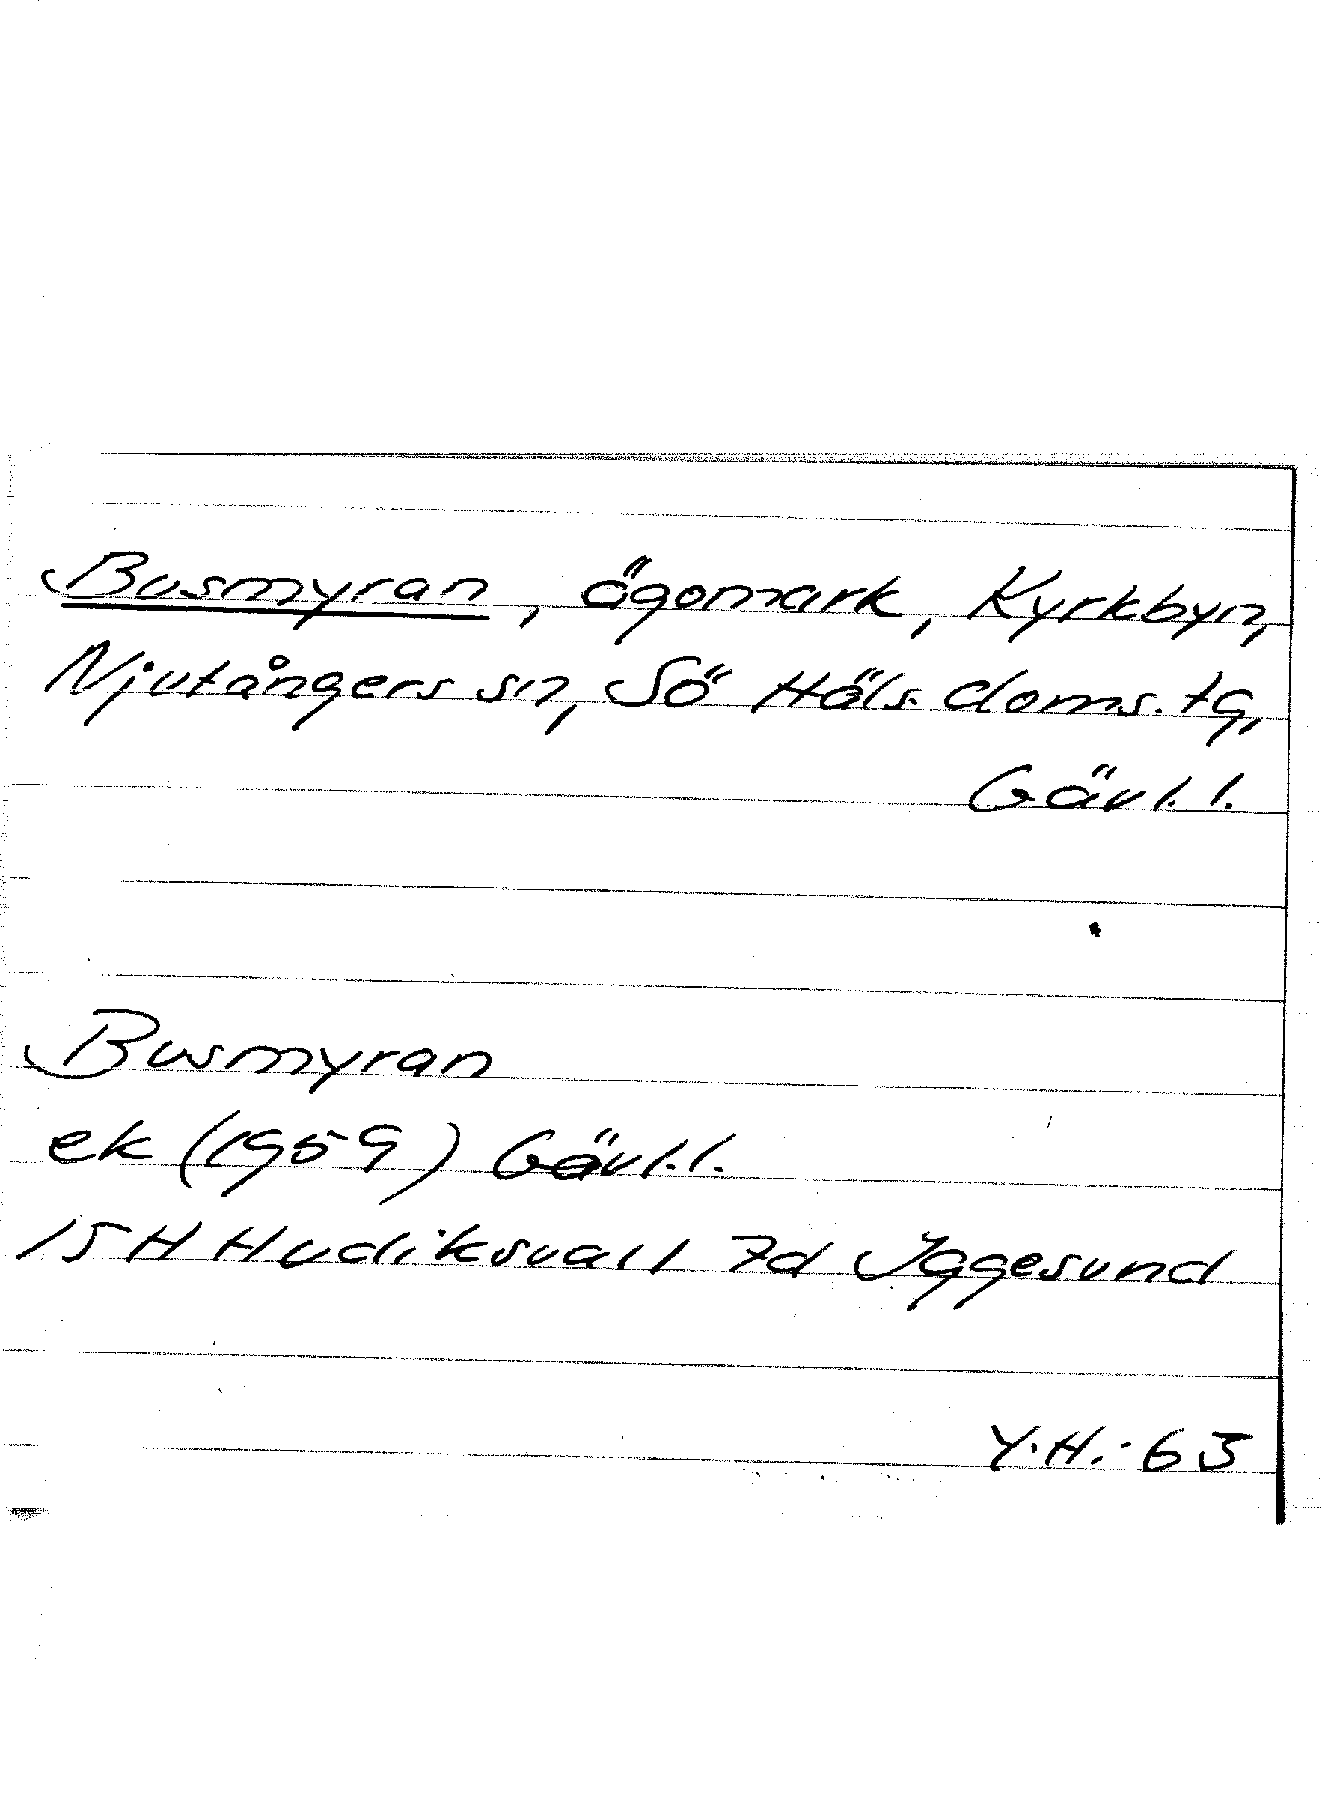 Busmyran, ägomark, Kyrkbyn,
Njutångers sn, Sö Häls. doms. tg,
Gävl. l.
Busmyran
ek (1959) Gävl. l.
15 H Hudiksvall 7d Iggesund
Y.H.-63